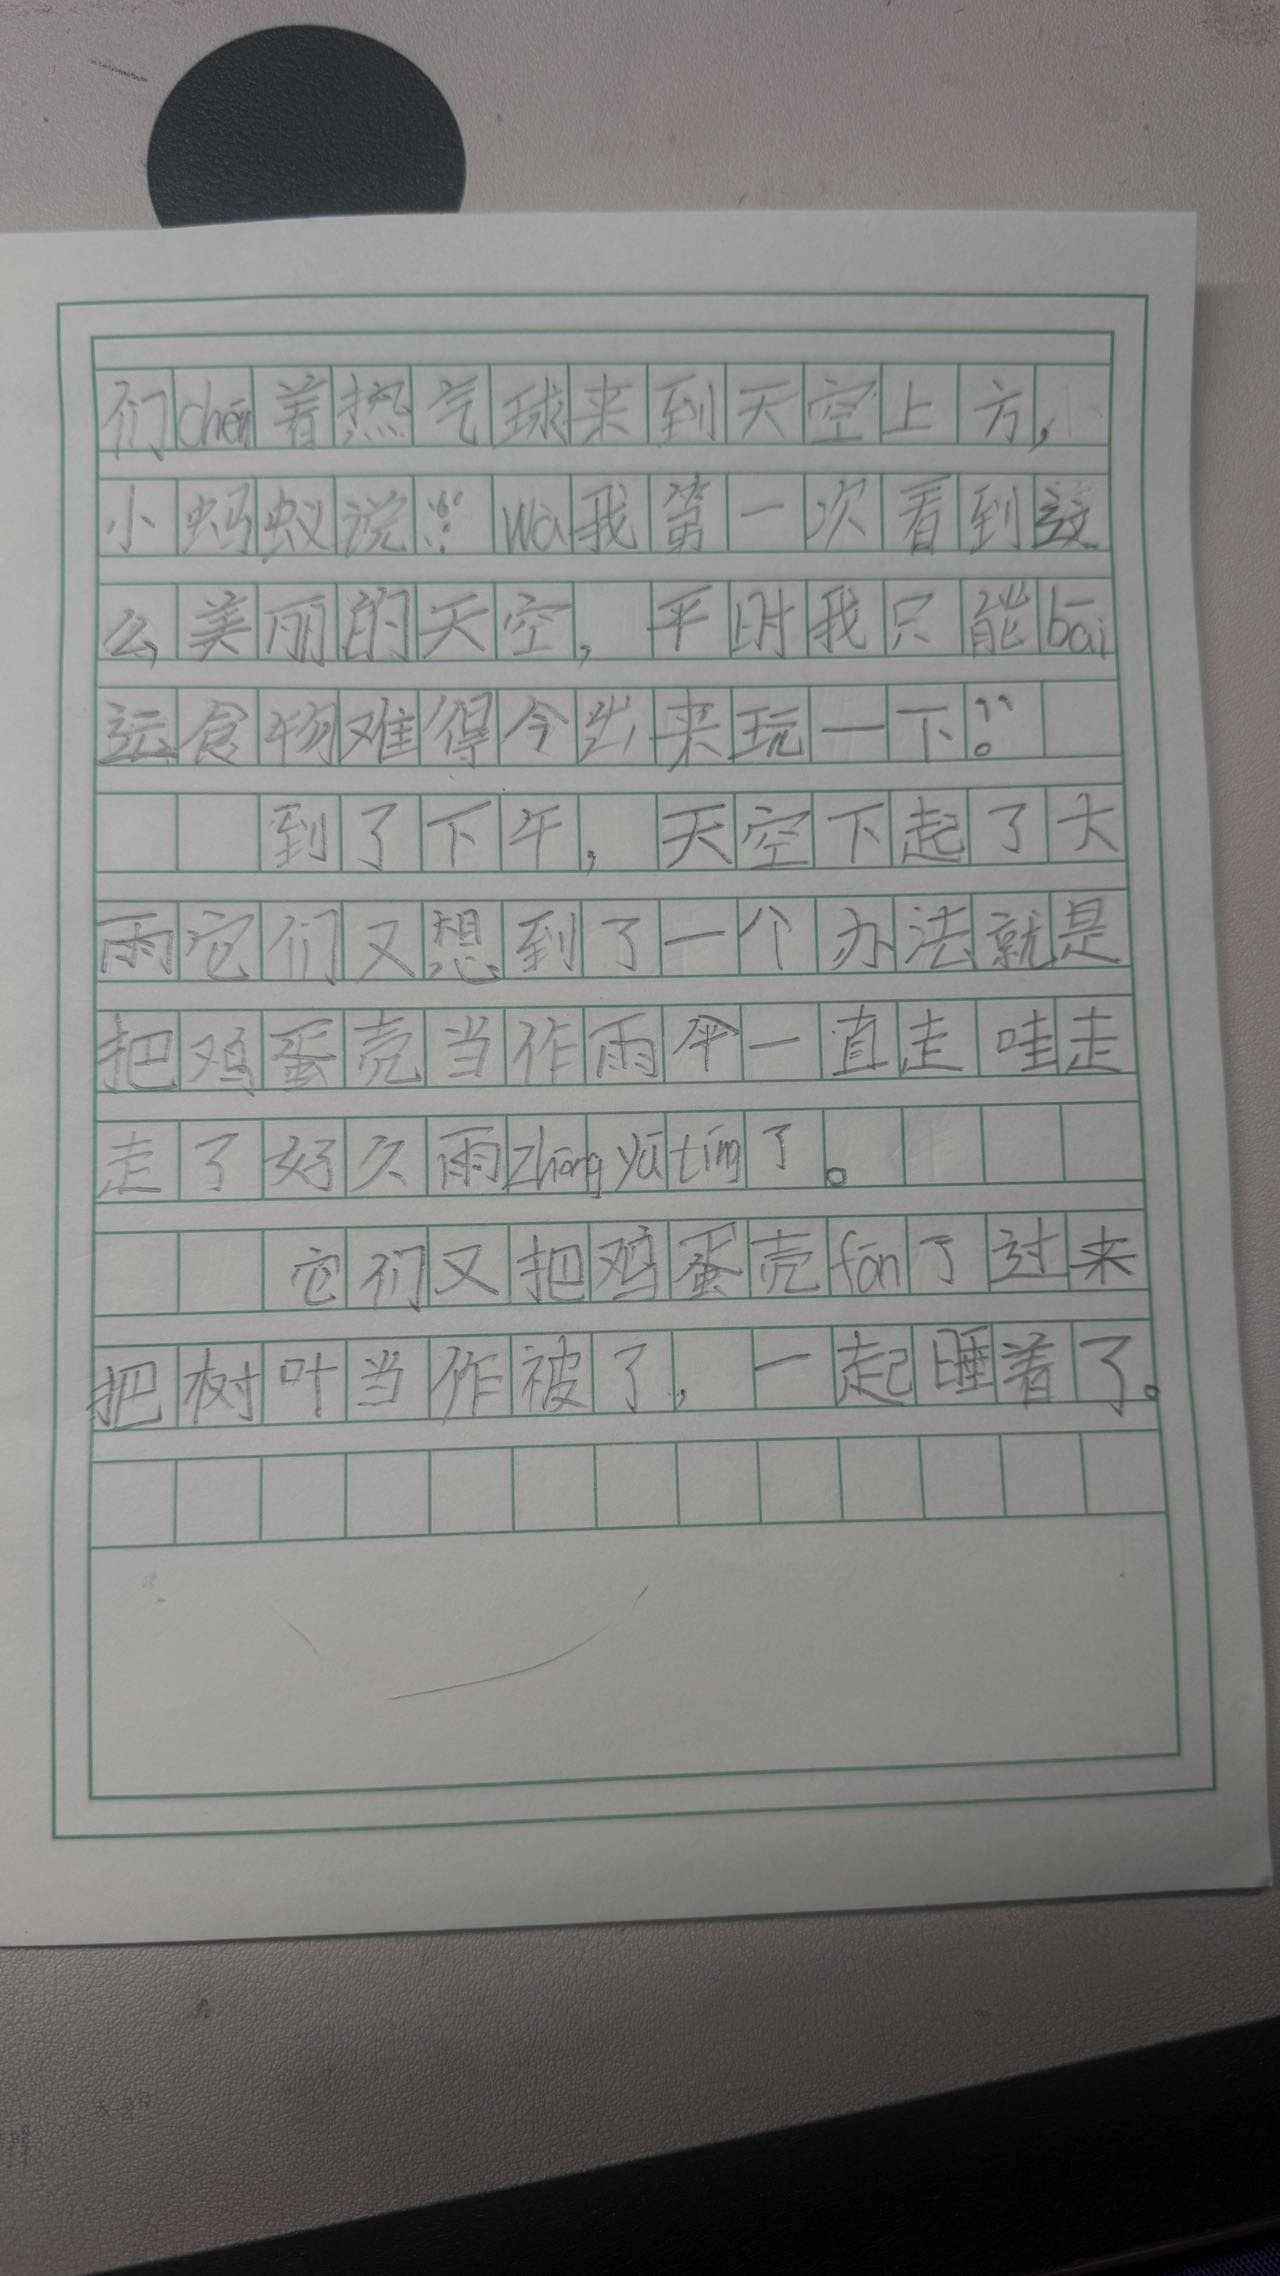 们chén着热气球来到天空上方，
小蚂蚁说：“Wa我第一次看到这
么美丽的天空，平时我只能bāi
运食物难得今出来玩一下。”
到了下午，天空下起了大
雨它们又想到了一个办法就是
把鸡蛋壳当作雨伞一直走哇走
走了好久雨zhōng yú tíng了。
它们又把鸡蛋壳fān了过来
把树叶当作被了，一起睡着了。